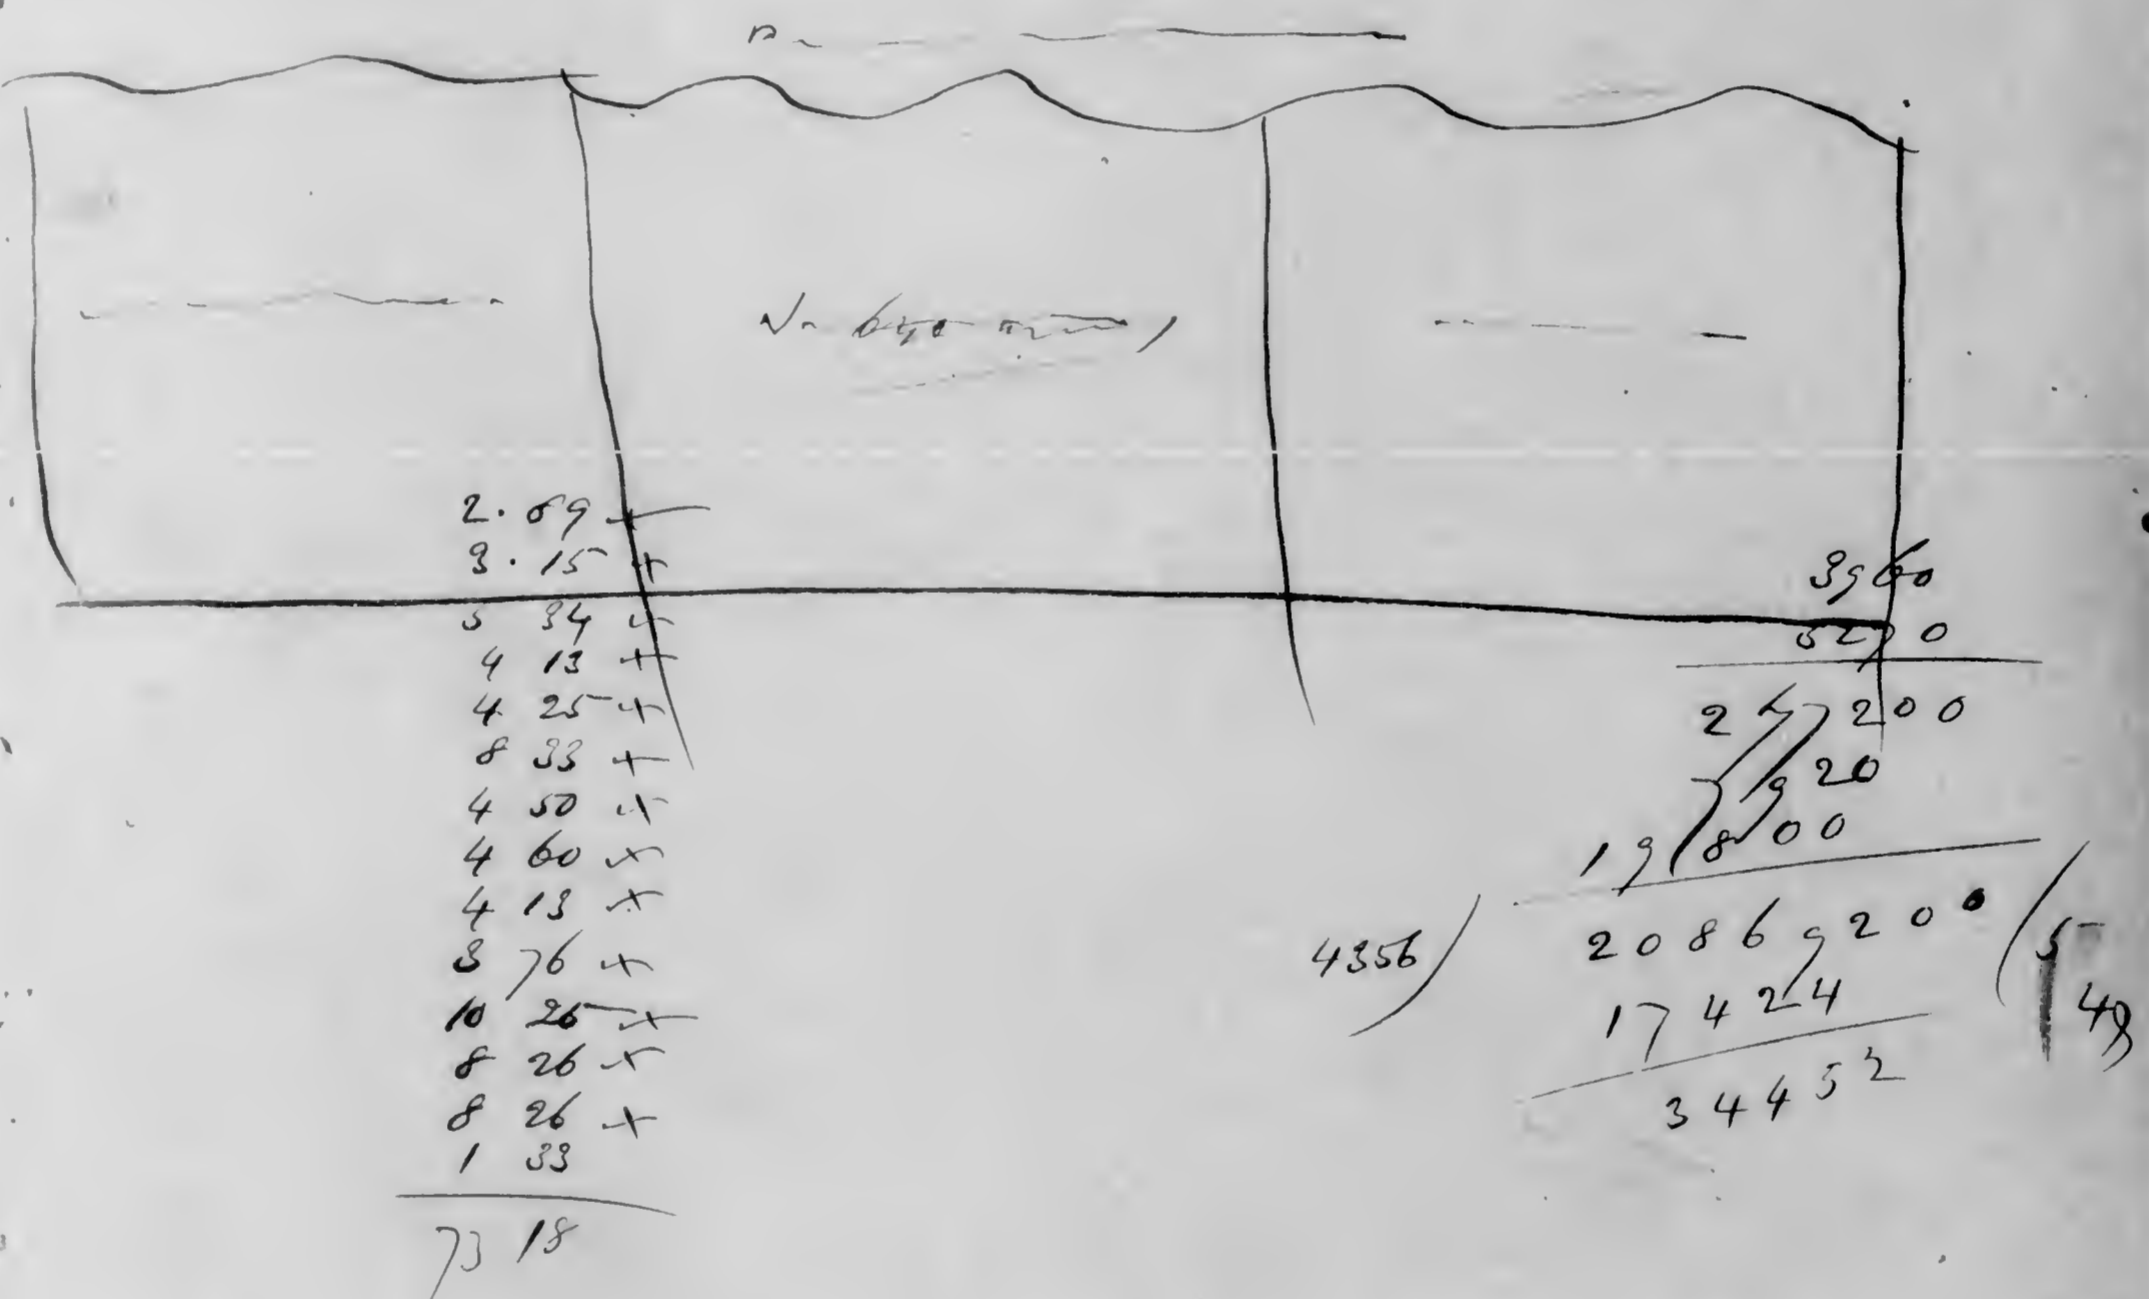 2. 69
3. 15
5 34
4 13
4 25
8 33
4 50
4 60
4 13
3 76
10 26
8 26
8 26
1 33
73 18
3960
5270
277200
7920
19800
4356) 20869200 (5
17424
48
34452